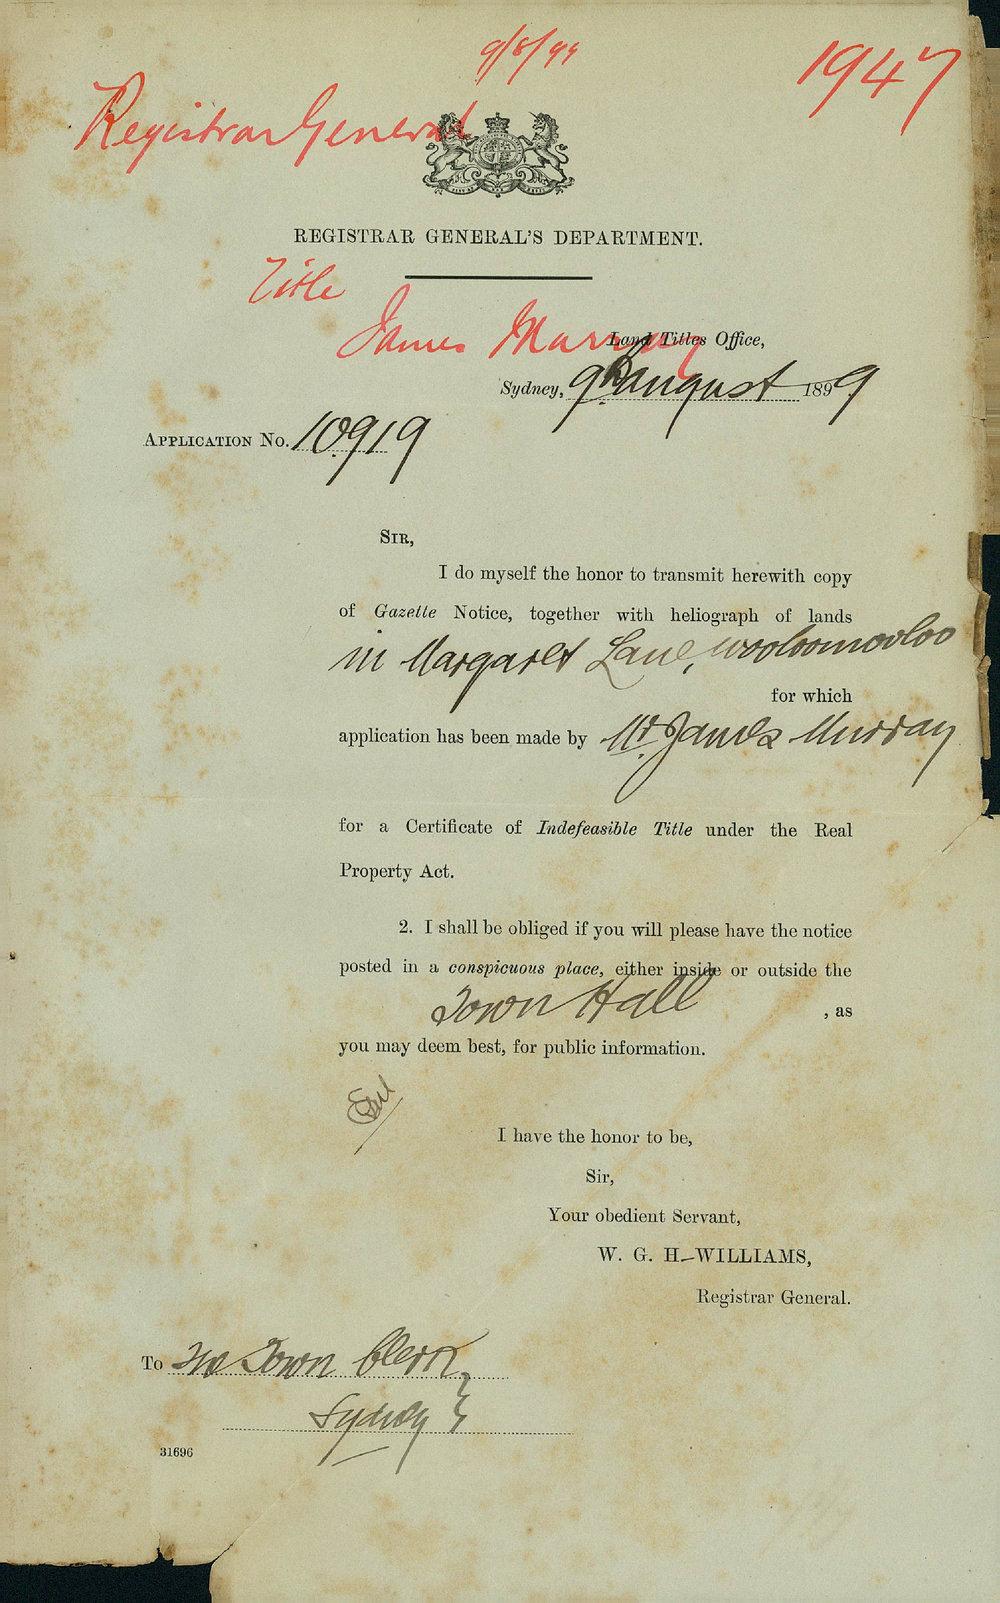 9/8/99
1947
Registrar General
REGISTRAR GENERAL'S DEPARTMENT.
Title
James Murray
Land Titles Office,
Sydney, 9th August 1899
APPLICATION No. 10919
SIR,
I do myself the honor to transmit herewith copy
of Gazette Notice, together with heliograph of lands
in Margaret Lane, Wooloomooloo
for which
application has been made by Mr James Murray
for a Certificate of Indefeasible Title under the Real
Property Act.
2. I shall be obliged if you will please have the notice
posted in a conspicuous place, either inside or outside the
Town Hall , as
you may deem best, for public information.
I have the honor to be,
Sir,
Your obedient Servant,
W. G. H-WILLIAMS,
Registrar General.
To The Town Clerk
Sydney
31696